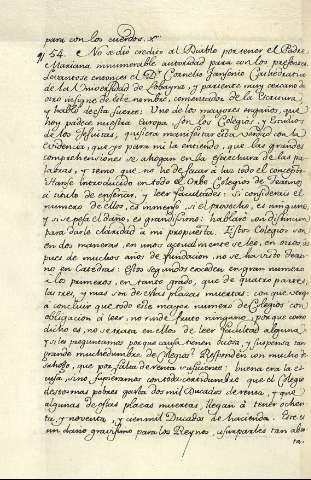 para con los cuerdos. Xᵐ
54. No se dió credito al Diablo por tener el Padre
Mariana innumerable autoridad para con los profesores
Levantose entonces el Dʳ Cornelio Jansonio Cathedratico
de la Universidad de Lobayna, y pariente muy cercano de
otro insigne de este nombre, comentador de la
y hablo de esta suerte. Uno de los mayores engaños, que
hoy padece nuestra Europa son los Colegios, y Estudios
de los Jesuitas, quisiera manifestar esta verdad con la
evidencia, que yo para mi la entiendo, que las grandes
comprehensiones se ahogan en la estrechura de las pa-
labras, y temo que no he de fixar á las todo el concepto.
Hanse introducido en todo el Orbe Colegios de Teatinos,
á titulo de enseñar, y leer facultades: Si consideras el
numero de ellos, es inmenso, si el provecho, es ninguno,
y si se pesa el daño, es grandisimo: hablaré con distincion
para darle claridad a mi propuesta. Estos Colegios son
en dos maneras, en unos actualmente se lee, en otros des-
pues de muchos años de fundacion, no se ha visto Teati-
no en Catedras: estos segundos exceden en gran numero
a los primeros, en tanto grado, que de quatro partes
las tres, y mas son de estas plazas muertas: con que vengo
á concluir que todo este mayor numero de Colegios con
obligacion á leer, no rinde fruto ninguno, porque como
dicho es, no se trata en ellos de leer facultad alguna,
y si les preguntamos por que causa tienen ociosa, y suspensa tan
grande muchedumbre de Colegios? Responden con mucho de-
sahogo, que por falta de renta suficiente: buena era la es-
cusa, si no supieramos con toda certidumbre que el Colegio
de estos mas pobres gasta dos mil Ducados de renta, y que
algunas de estas plazas muertas, llegan á tener ochen-
ta, y noventa, y cien mil Ducados de hacienda. Este es
un daño gravisimo para los Reynos, usurparles tan abier-
ta.